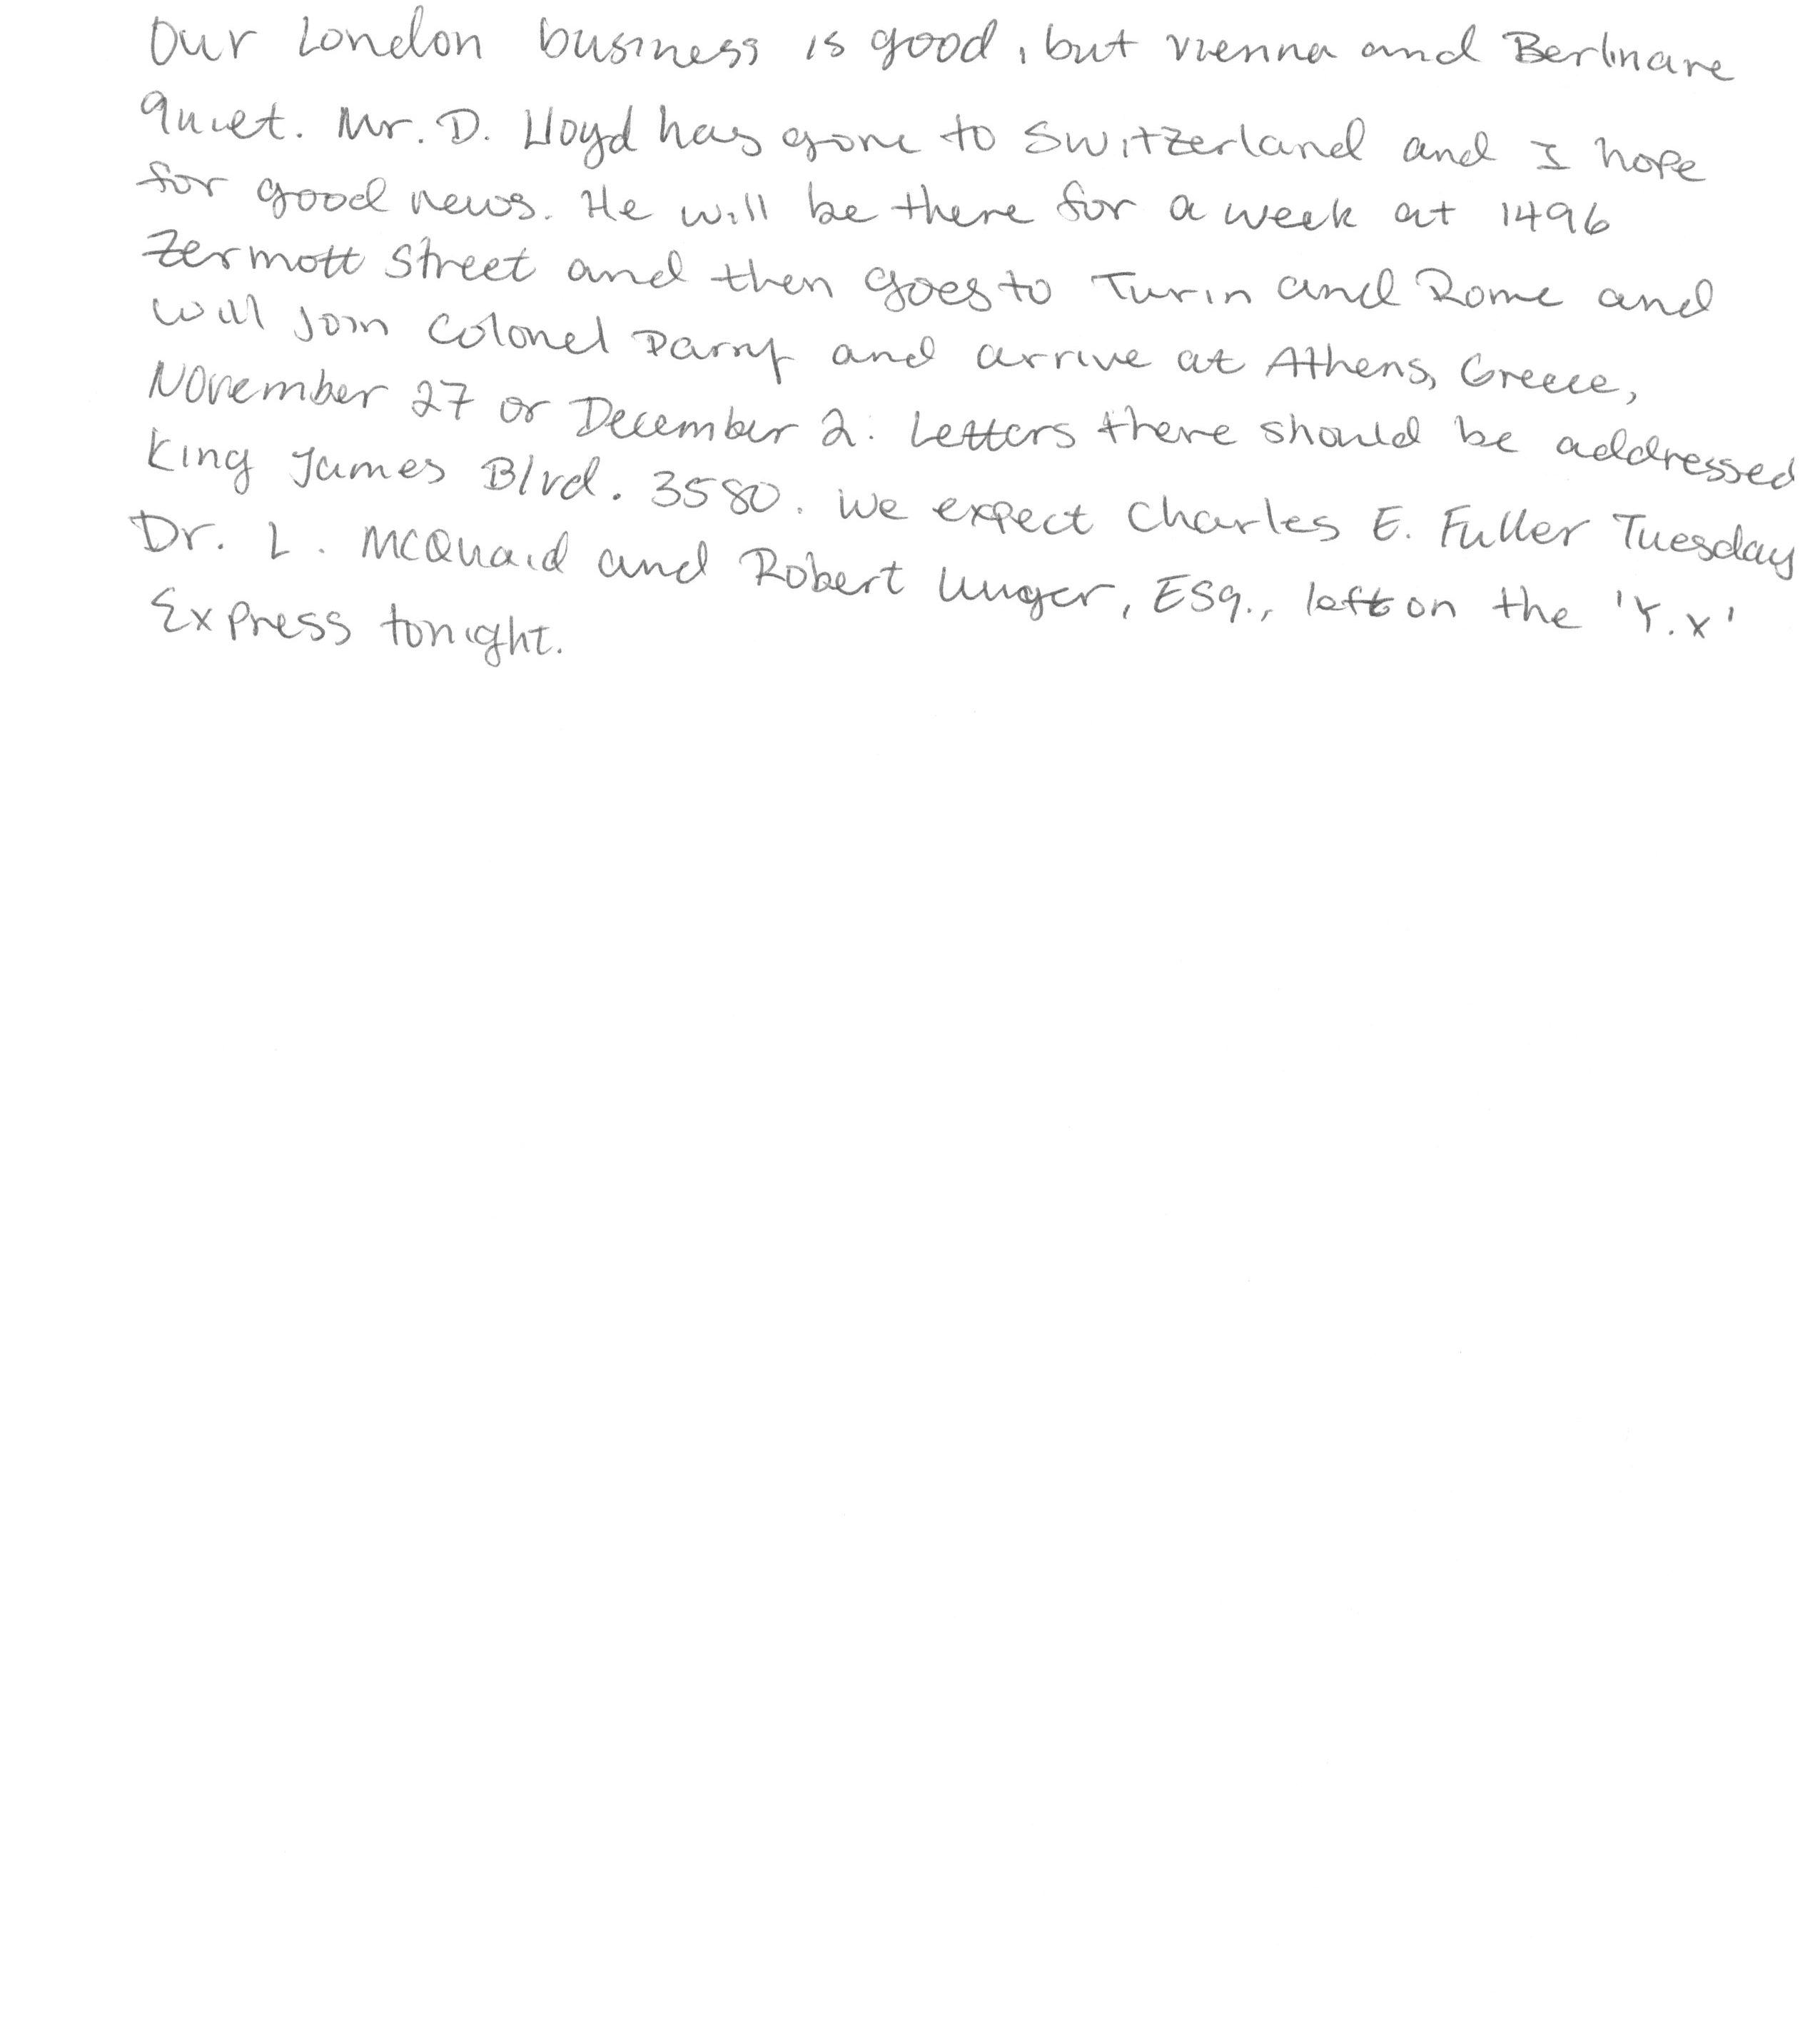 Our London business is good, but Vienna and Berlin are
quiet. Mr. D. Lloyd has gone to Switzerland and I hope
for good news. He will be there for a week at 1496
Zermott Street and then goes to Turin and Rome and
will join Colonel Parry and arrive at Athens, Greece,
November 27 or December 2. Letters there should be addressed
King James Blvd. 3580. We expect Charles E. Fuller Tuesday
Dr. L. McQuaid and Robert Unger, Esq., left on the 'Y.X'
Express tonight.